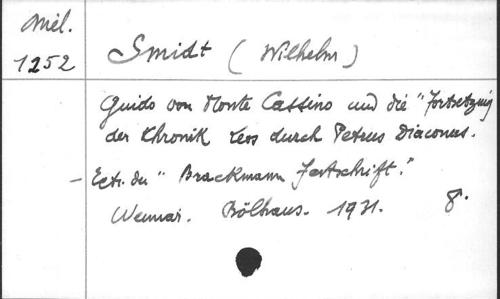 Mél.
1252
Smidt (Wilhelm)
Guido von Monte Cassino und die "Fortsetzung
der Chronik Leos durch Petrus Diaconus.
- Extr. du "Brackmann Festschrift."
Weimar. Böhlaus. 1931. 8°.